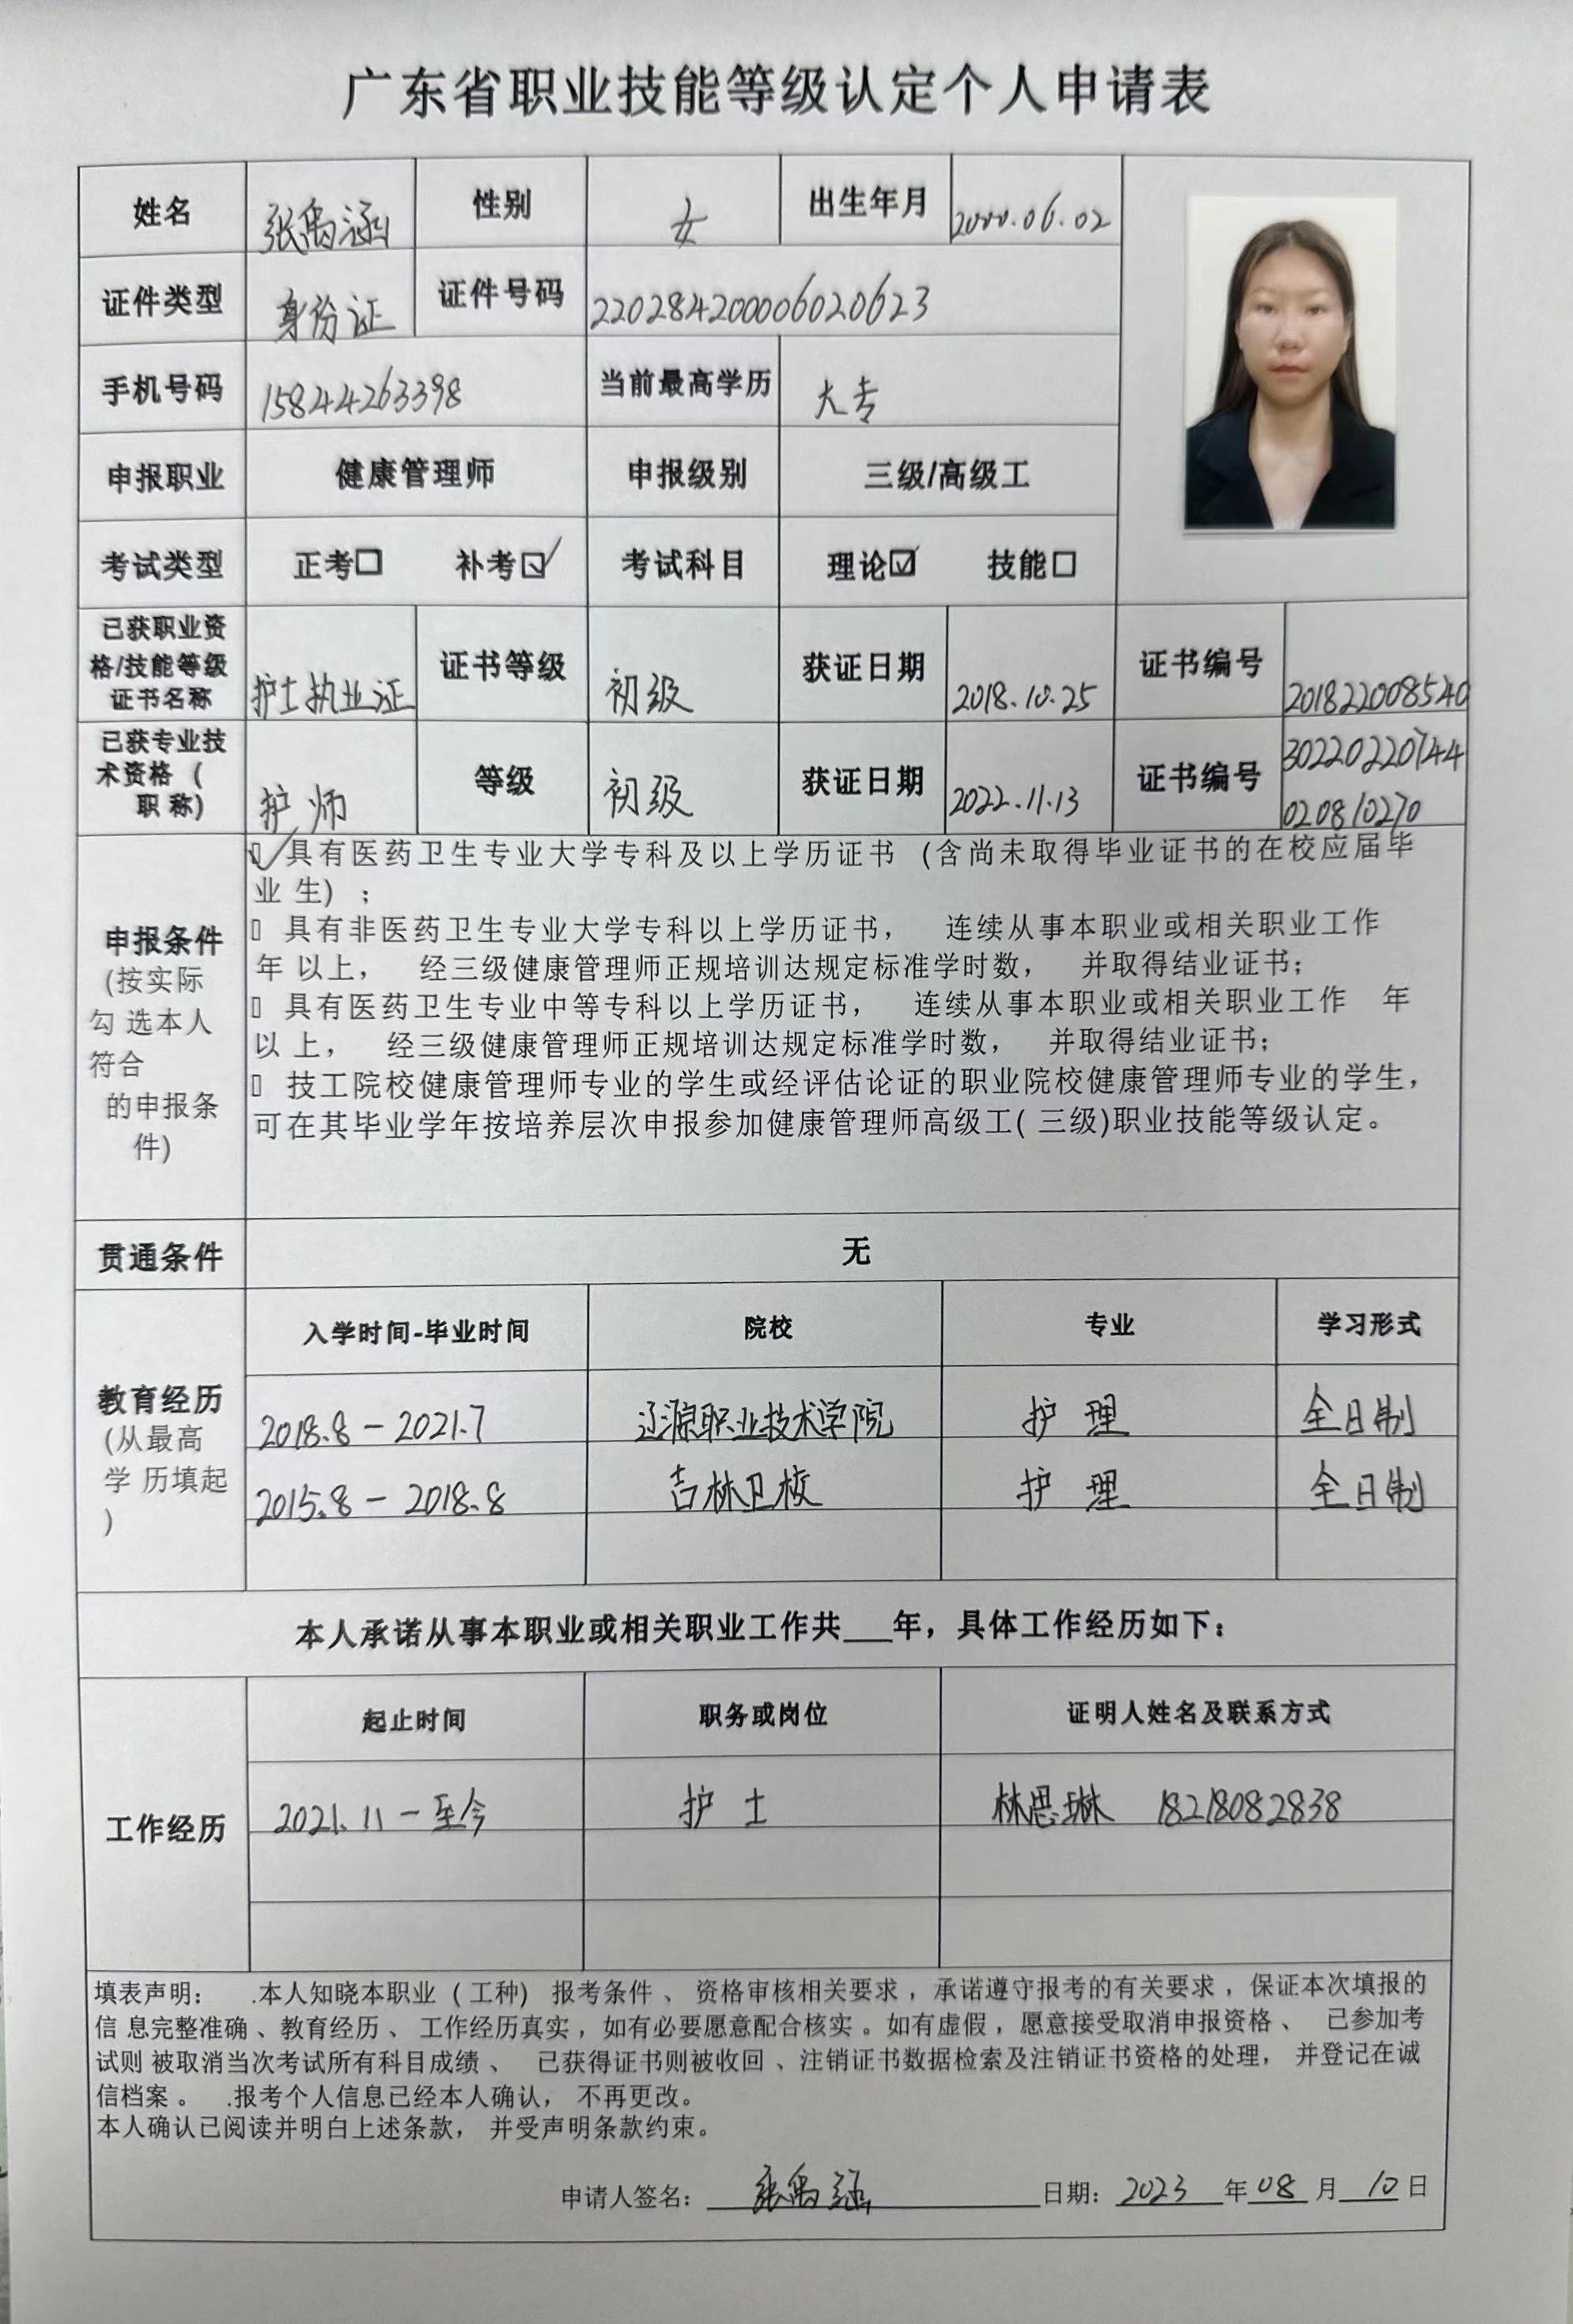 广东省职业技能等级认定个人申请表
姓名 张禹涵 性别 女 出生年月 2000.06.02
证件类型 身份证 证件号码 220284200006020623
手机号码 15844263398 当前最高学历 大专
申报职业 健康管理师 申报级别 三级/高级工
考试类型 正考□ 补考☑ 考试科目 理论☑ 技能□
已获职业资格/技能等级证书名称 护士执业证 证书等级 初级 获证日期 2018.10.25 证书编号 201822008540
已获专业技术资格(职称) 护师 等级 初级 获证日期 2022.11.13 证书编号 30220220744
020810270
申报条件
(按实际
勾 选本人
符合
的申报条
件)
☑ 具有医药卫生专业大学专科及以上学历证书 (含尚未取得毕业证书的在校应届毕
业 生) ;
▯ 具有非医药卫生专业大学专科以上学历证书, 连续从事本职业或相关职业工作
年 以上, 经三级健康管理师正规培训达规定标准学时数, 并取得结业证书;
▯ 具有医药卫生专业中等专科以上学历证书, 连续从事本职业或相关职业工作 年
以 上, 经三级健康管理师正规培训达规定标准学时数, 并取得结业证书;
▯ 技工院校健康管理师专业的学生或经评估论证的职业院校健康管理师专业的学生,
可在其毕业学年按培养层次申报参加健康管理师高级工( 三级)职业技能等级认定。
贯通条件 无
教育经历
(从最高
学 历填起
)
入学时间-毕业时间 院校 专业 学习形式
2018.8-2021.7 辽源职业技术学院 护理 全日制
2015.8-2018.8 吉林卫校 护理 全日制
本人承诺从事本职业或相关职业工作共___年,具体工作经历如下:
工作经历
起止时间 职务或岗位 证明人姓名及联系方式
2021.11-至今 护士 林思琳 18218082838
填表声明: .本人知晓本职业 (工种) 报考条件 、 资格审核相关要求 , 承诺遵守报考的有关要求 , 保证本次填报的
信 息完整准确 、教育经历 、 工作经历真实 , 如有必要愿意配合核实 。如有虚假 , 愿意接受取消申报资格 、 已参加考
试则 被取消当次考试所有科目成绩 、 已获得证书则被收回 、注销证书数据检索及注销证书资格的处理, 并登记在诚
信档案 。 .报考个人信息已经本人确认, 不再更改。
本人确认已阅读并明白上述条款, 并受声明条款约束。
申请人签名: 张禹涵 日期: 2023 年 08 月 10 日